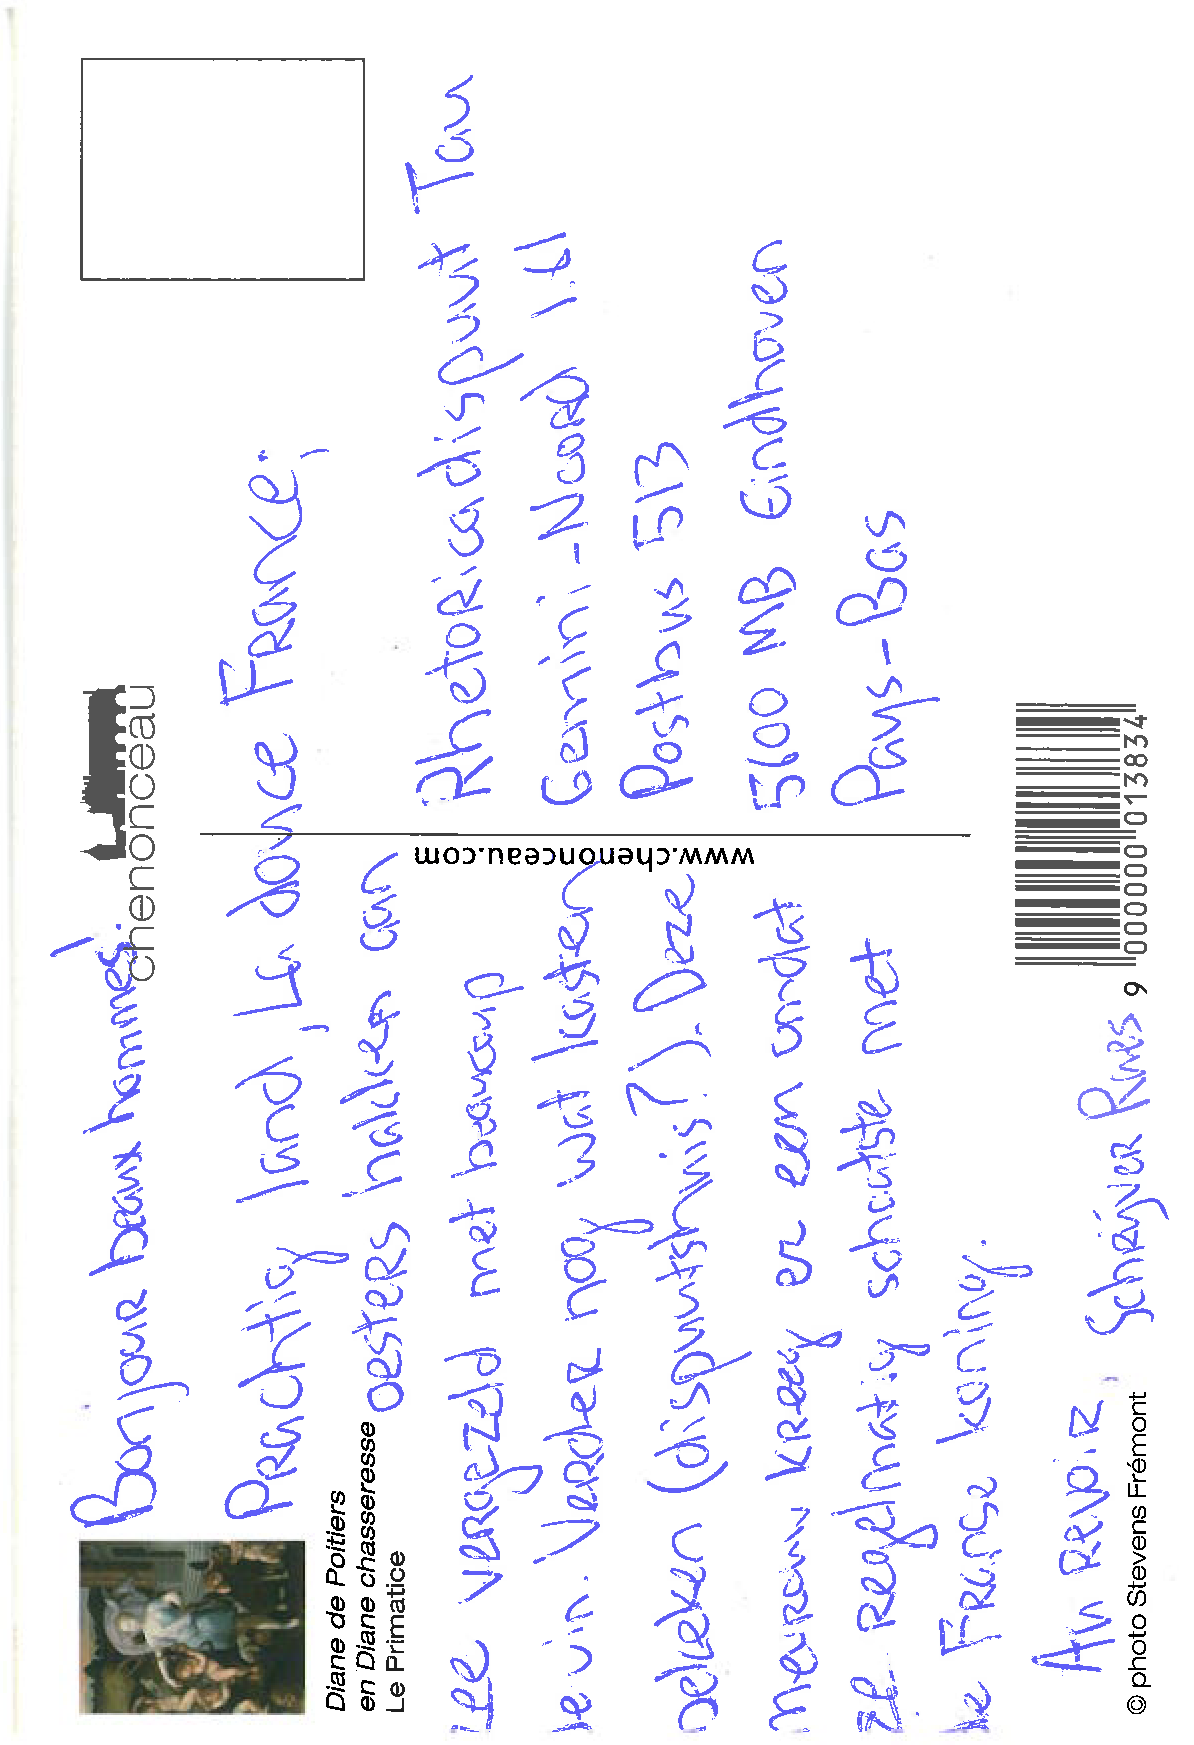 Bonjour beaux hommes!
chenonceau
Prachtig land, La douce France;
oesters hakken aan
zee vergezeld met beaucoup
de vin. Verder nog wat kasten
bekeken (dispuutshuis?). Deze
mevrouw kreeg er een omdat
ze regelmatig schaatste met
de Franse koning.
Au revoir Schrijver Roes
Diane de Poitiers
en Diane chasseresse
Le Primatice
© photo Stevens Frémont
www.chenonceau.com
Rhetoricadispuut Tau
Gemini-Noord 1.61
Posthus 513
5600 MB Eindhoven
Pays-Bas
9 000000 013834